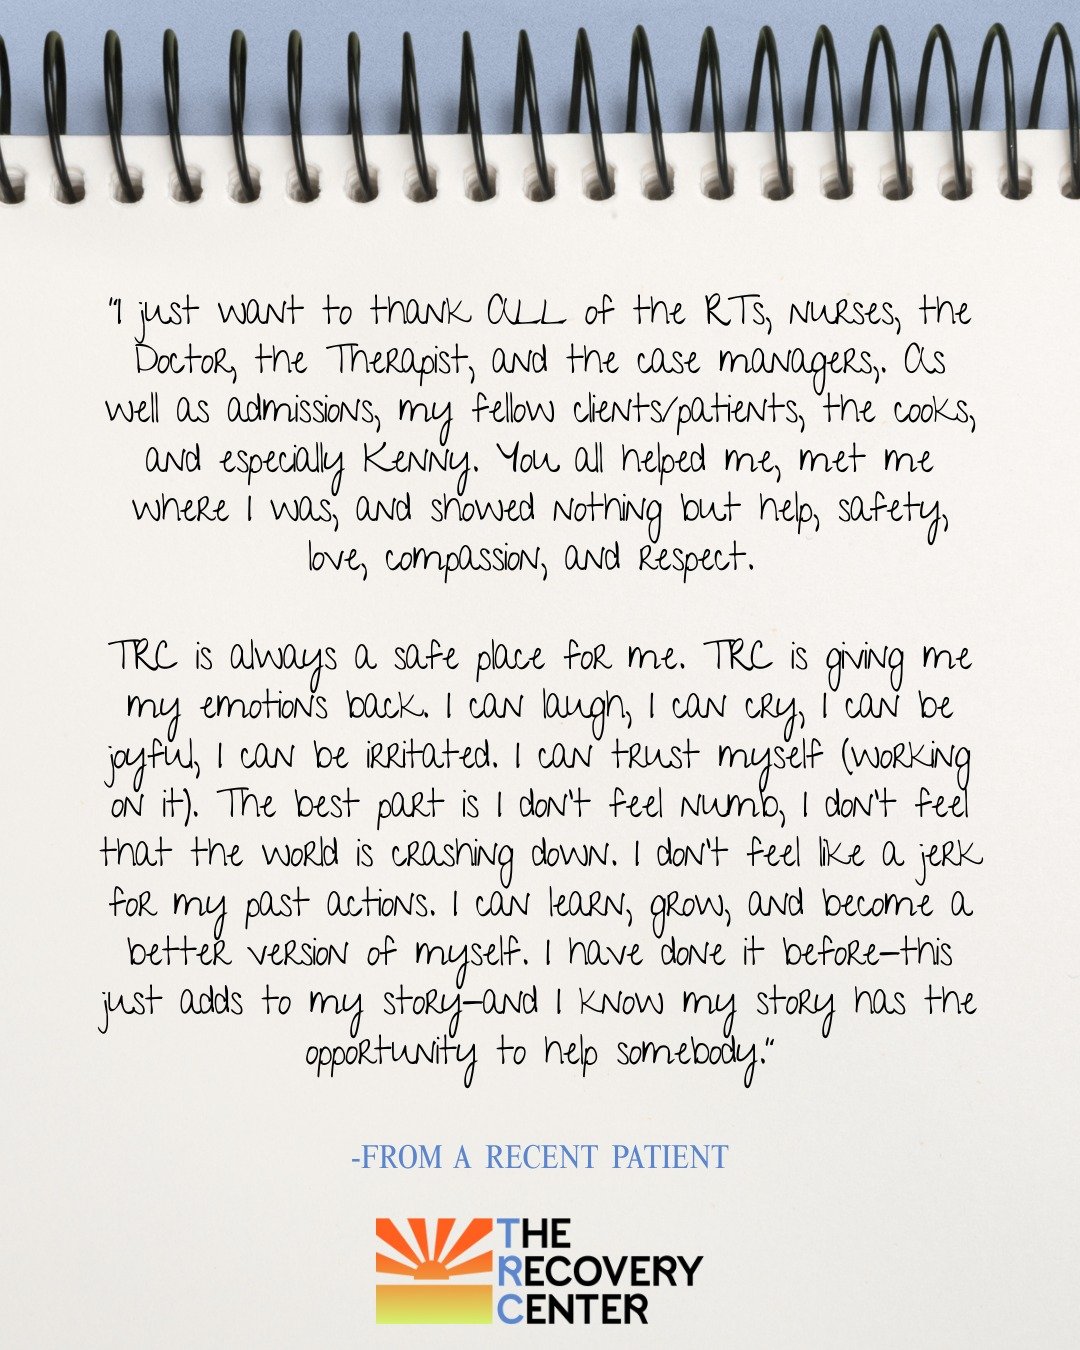 "I just want to thank ALL of the RTs, nurses, the
Doctor, the Therapist, and the case managers,. As
well as admissions, my fellow clients/patients, the cooks,
and especially Kenny. You all helped me, met me
where I was, and showed nothing but help, safety,
love, compassion, and respect.
TRC is always a safe place for me. TRC is giving me
my emotions back. I can laugh, I can cry, I can be
joyful, I can be irritated. I can trust myself (working
on it). The best part is I don't feel numb, I don't feel
that the world is crashing down. I don't feel like a jerk
for my past actions. I can learn, grow, and become a
better version of myself. I have done it before—this
just adds to my story—and I know my story has the
opportunity to help somebody."
-FROM A RECENT PATIENT
THE
RECOVERY
CENTER